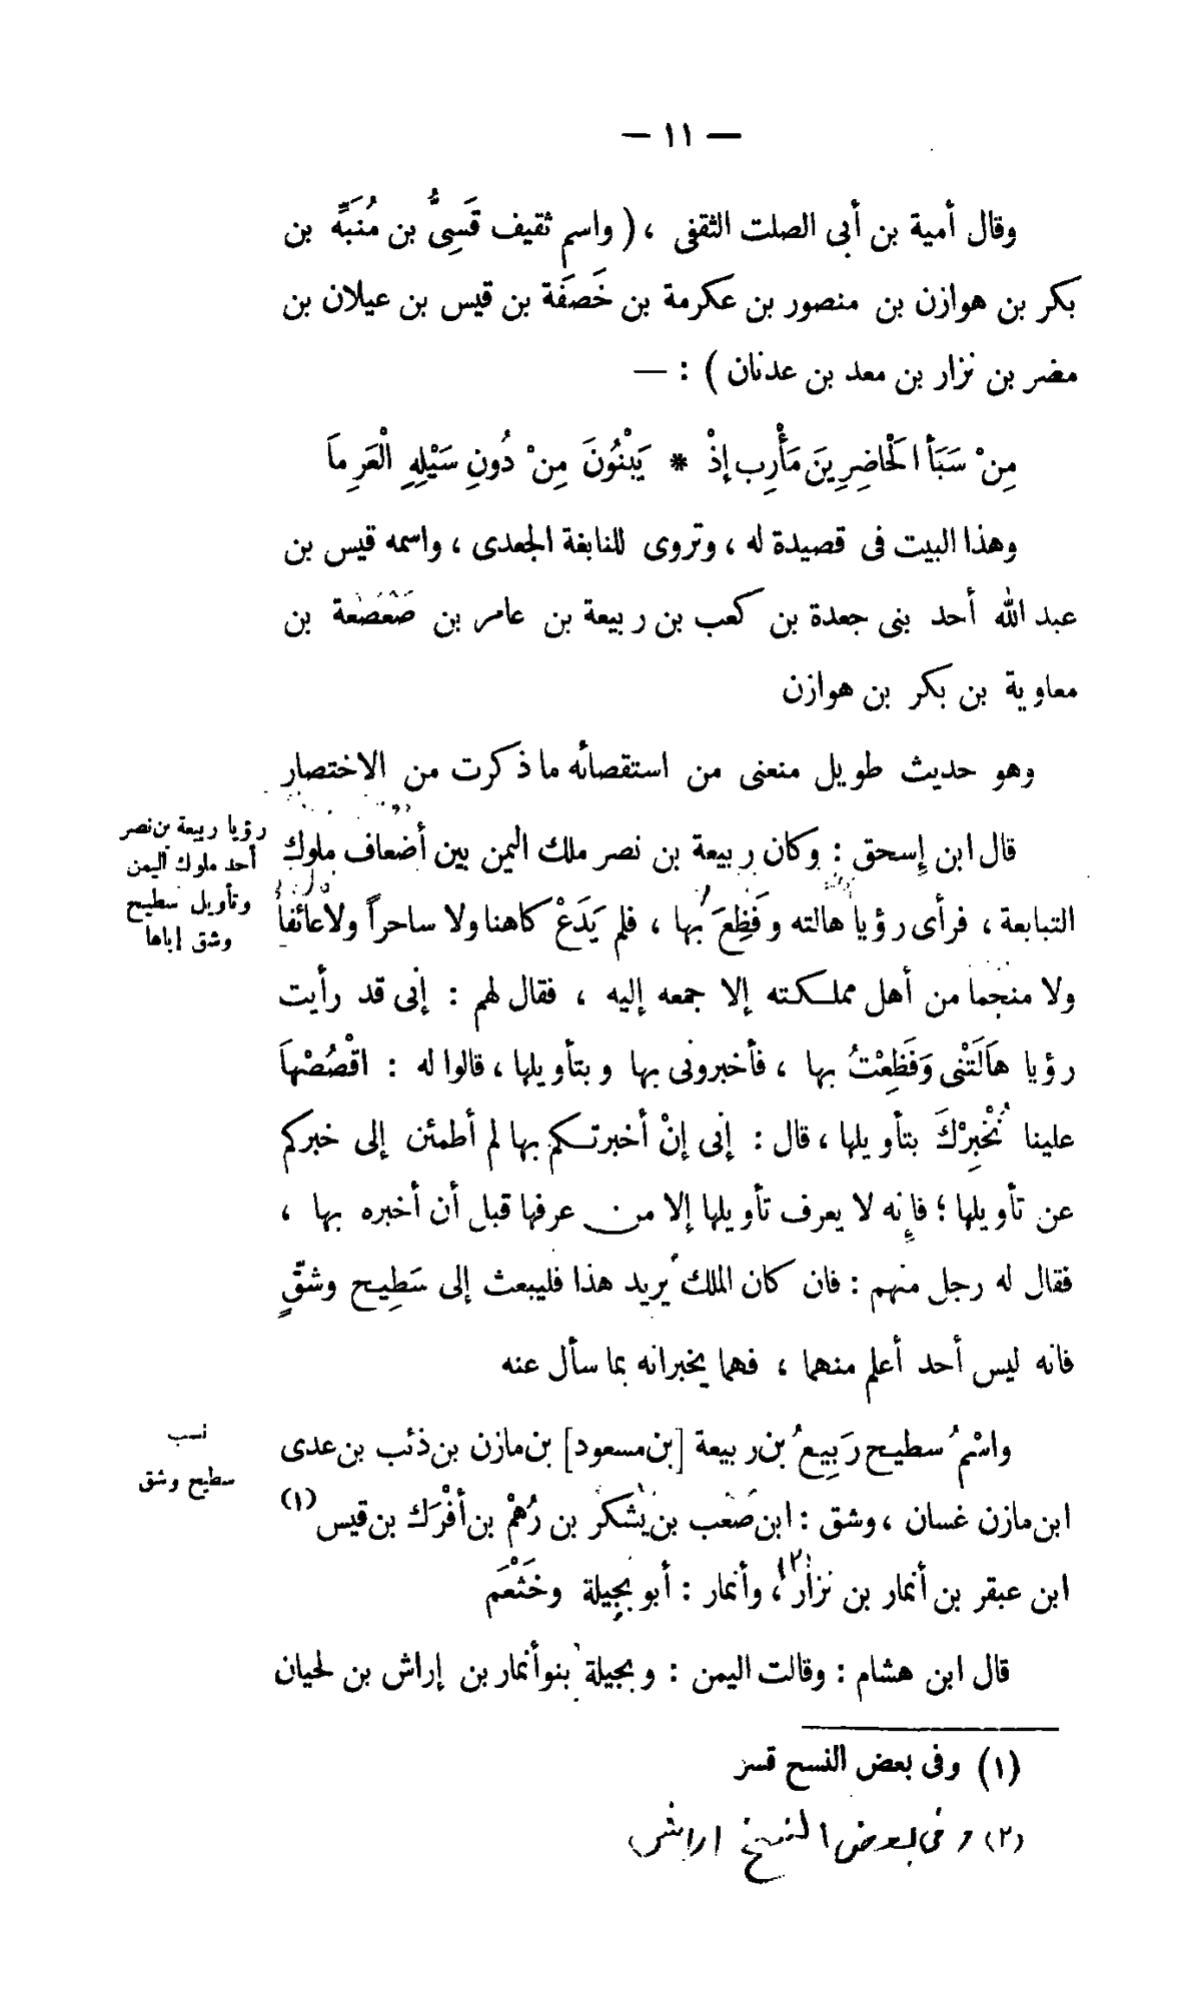 — ١١ —
وقال أمية بن أبى الصلت الثقفى ، ( واسم ثقيف قَسِىُّ بن مُنَبِّه بن
بكر بن هوازن بن منصور بن عكرمة بن خَصَفَة بن قيس بن عيلان بن
مضر بن نزار بن معد بن عدنان ) : —
مِنْ سَبَأ الْحَاضِرِينَ مَأْرِب إذْ * يَبْنُونَ مِنْ دُونِ سَيْلِهِ الْعَرِمَا
وهذا البيت فى قصيدة له ، وتروى للنابغة الجعدى ، واسمه قيس بن
عبد الله أحد بنى جعدة بن كعب بن ربيعة بن عامر بن صَعْصَعة بن
معاوية بن بكر بن هوازن
وهو حديث طويل منعنى من استقصائه ما ذكرت من الاختصار
رؤيا ربيعة بن نصر
أحد ملوك اليمن
وتأويل سطيح
وشق إياها
قال ابن إسحق : وكان ربيعة بن نصر ملك اليمن بين أضعاف ملوك
التبابعة ، فرأى رؤيا هالته وفَظِعَ بها ، فلم يَدَعْ كاهنا ولا ساحراً ولا عائفاً
ولا منجما من أهل مملكته إلا جمعه إليه ، فقال لهم : إنى قد رأيت
رؤيا هَالَتْنى وَفَظِعْتُ بها ، فأخبرونى بها وبتأويلها ، قالوا له : اقْصُصْهَا
علينا نُخْبِرْكَ بتأويلها ، قال : إنى إنْ أخبرتكم بها لم أطمئن إلى خبركم
عن تأويلها ؛ فإنه لا يعرف تأويلها إلا من عرفها قبل أن أخبره بها ،
فقال له رجل منهم : فان كان الملك يريد هذا فليبعث إلى سَطِيح وشقّ
فانه ليس أحد أعلم منهما ، فهما يخبرانه بما سأل عنه
نسب
سطيح وشق
واسْمُ سطيح رَبِيعُ بن ربيعة [ بن مسعود ] بن مازن بن ذئب بن عدى
ابن مازن غسان ، وشق : ابن صَعْب بن يَشْكر بن رُهْم بن أفْرَك بن قيس (١)
ابن عبقر بن أنمار بن نزار (٢) ، وأنمار : أبو بَجِيلة وخَثْعَم
قال ابن هشام : وقالت اليمن : وبجيلة بنو أنمار بن إراش بن لحيان
(١) وفى بعض النسخ قسر
(٢) وفى بعض النسخ اراش